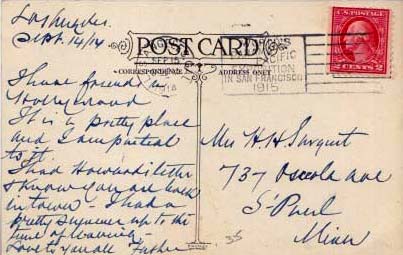 Los Angeles.
Sept. 14/14
I have friends in
Hollywood
It is a pretty place
and I am partial
to it.
I had Howards letter
& know you are back
in town - I had a
pretty up to the
time of leaving -
Love to you all Father
POST CARD
CORRESPONDENCE
ADDRESS ONLY
SEP 15
PACIFIC
IN SAN FRANCISCO
1915
U.S. POSTAGE
2 CENTS 2
Mrs H. H. Sargent
737 Osceola Ave
St Paul
Minn
35